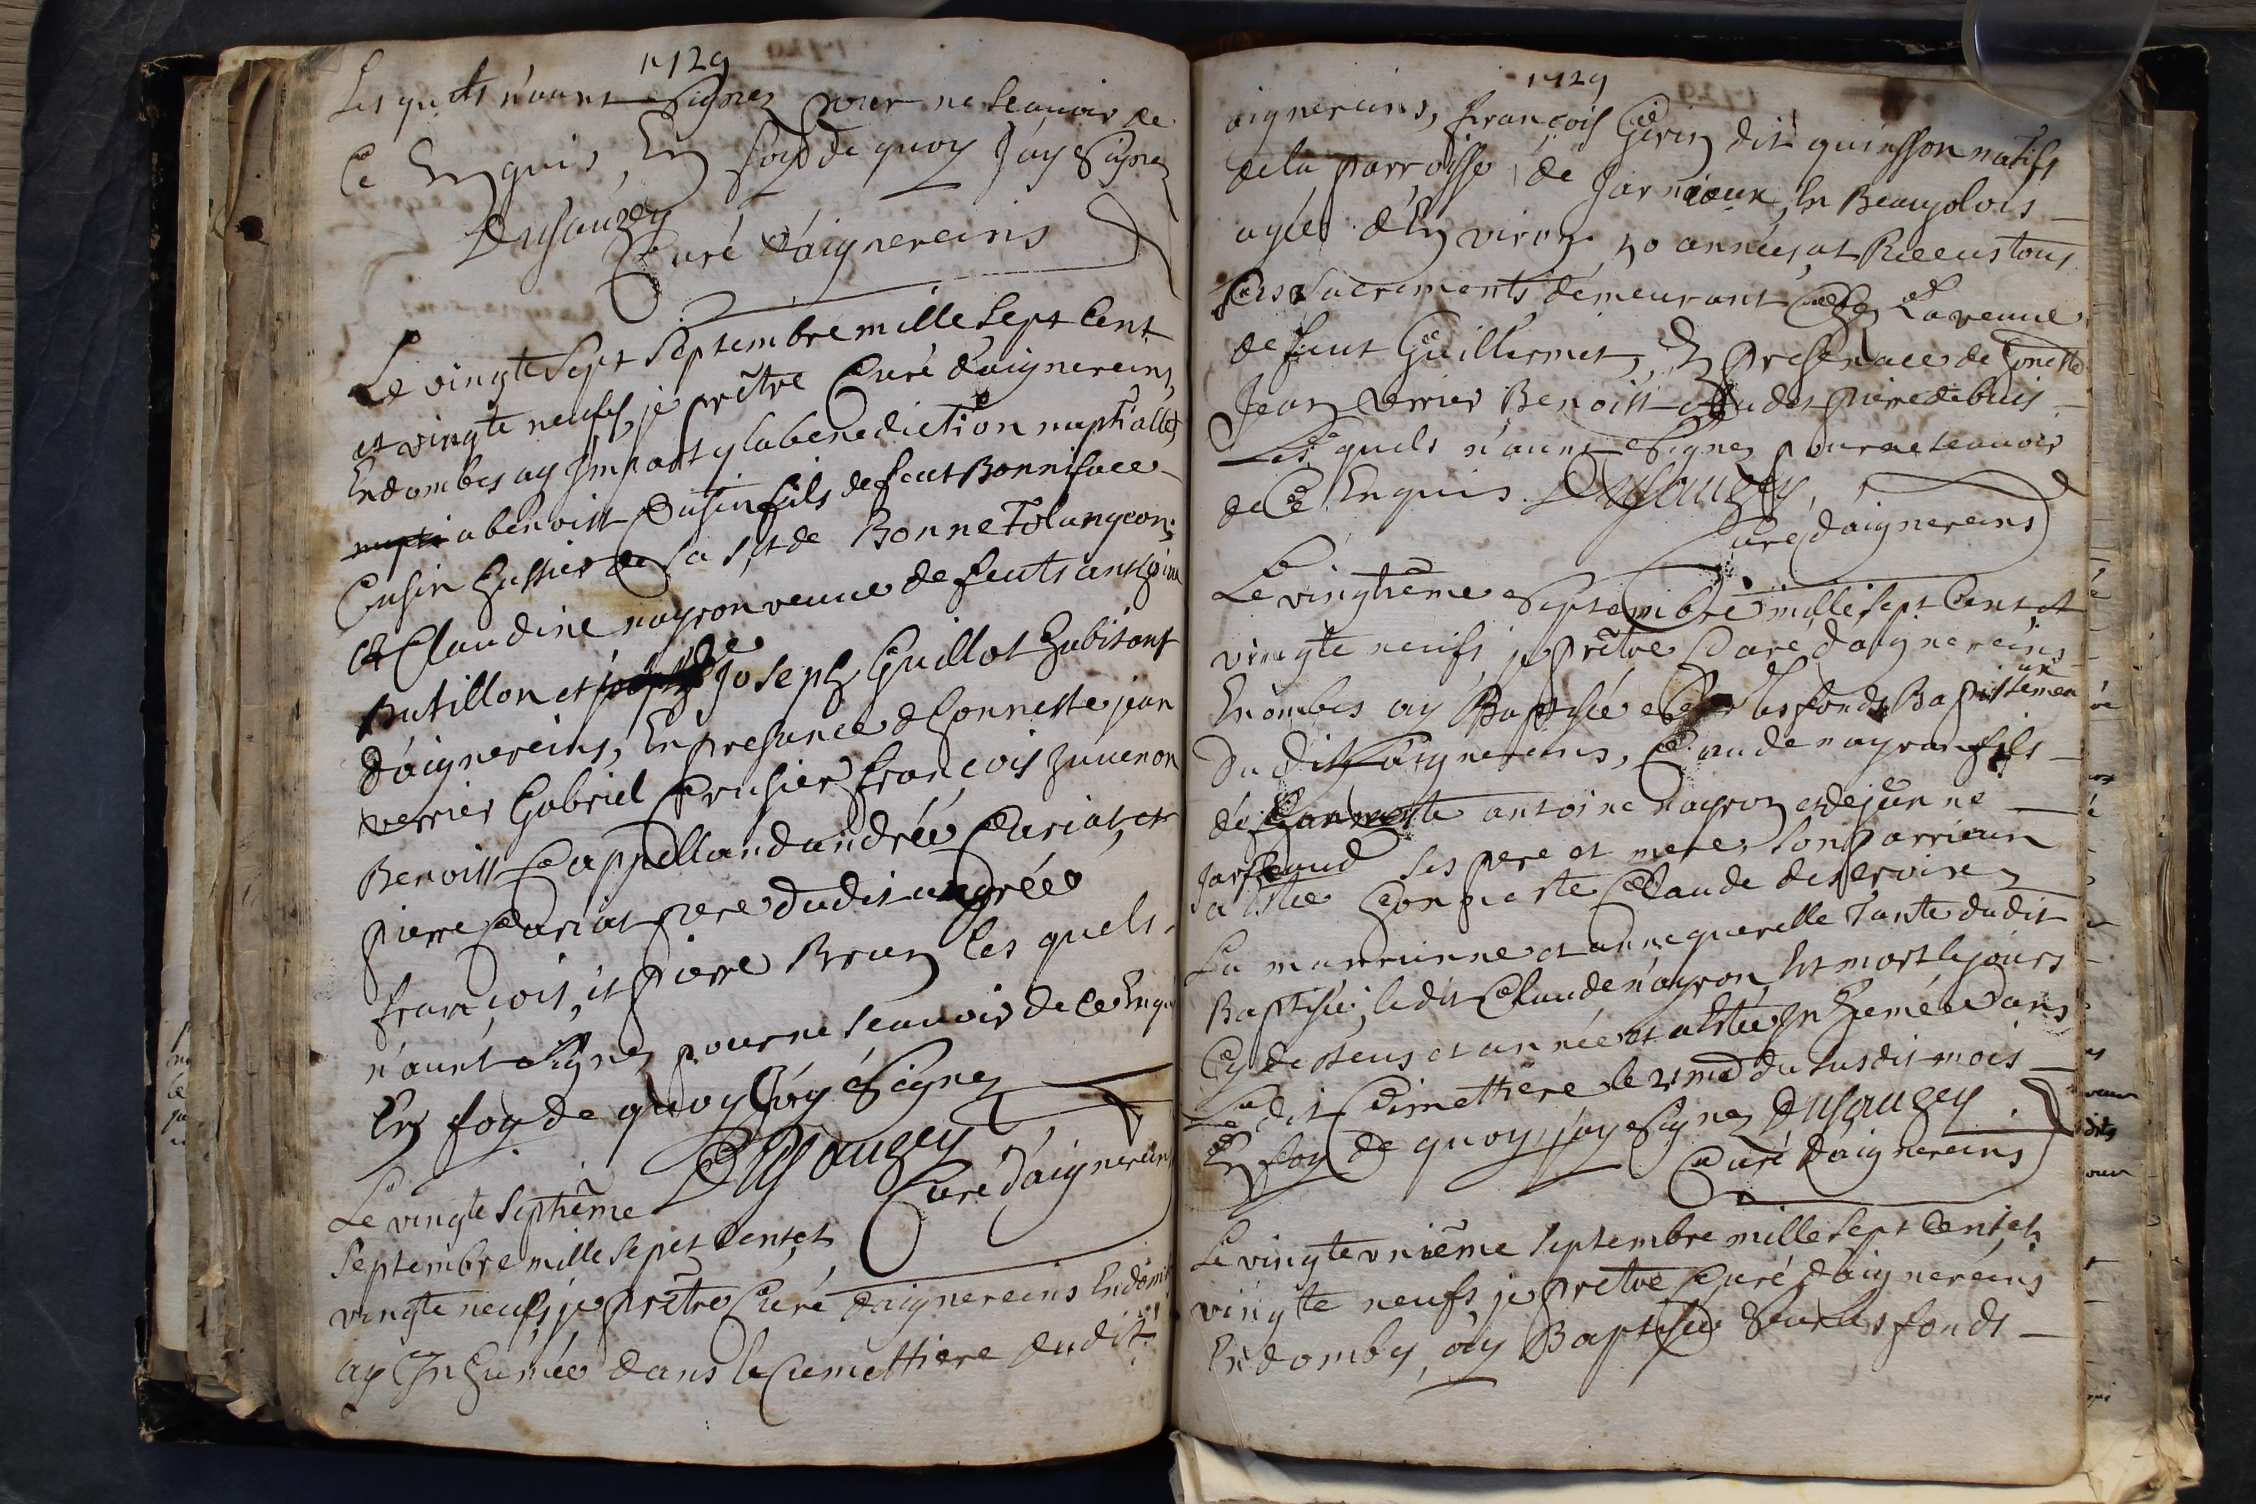 1729
Lesquels n'aunt Signez pour ne Seauoir de
Ce Enquis, En foyd de quoy J'ay Signez
Dusauzey
Curé d'aignereins
Le vingte Sept Septembre mille Sept Cent
et vingte neufs, je prêtre Curé d'aignereins,
Endombes ay Jmparty la benediction nuptialle
a benoist Cusin fils de feut Bonniface
Cusin et de Bonne Tolangeon
et Claudine nayron veuue de feuts
Butillon et de Joseph Guillot habitant
d'aignereins, En presance d honneste jean
verrier Gabriel Crusier françois Juuenon
Benoist Cappelland andrée Cariat, et
pierre Cariat pere dudit andrée
françois, et pierre Brun les quels
n'aunt Signez pour ne Seauoir de Ce Enqui
En foy de quoy J'ay Signez
Dusauzey
Curé d'aignereins
Le vingte Septiême
Septembre mille Sept Cent, et
vingte neufs, je prêtre Curé daignereins Endomb
ay Jnhumée dans le Cimettiere dudit
1729
aignereins, françois Girin dit quinsson natifs
de la parroisse de Jarnioux, En Beaujolois
agée d'Environ 50 années, at Receus tous
Les Sacrements demeurant Chez La veuue
de faut Guillermet, En presenace de honeste
Jean verrier Benoist pierre debuis
Les quels n'aunt Signez pour ne Seauoir
de Ce Enquis. Dusauzey,
Curé d'aignereins
Le vingtiême Septembre mille Sept Cent, et
vingte neufs je prêtre Curé d'aignereins
En ombes ay Baptisée les fonds Baptisemeu
aux
Du dit aignereins, Claude nayron fils
de honneste antoine nayron et de jeanne
ses pere et mere, Son parrieun
a Estée honneste Claude deservoise
La marrienne et anne querelle Tante dudit
Baptisée, ledit Claude nayron Est mort le jours
Cy dessus et année et at Estée Jnhumée dans
Ledit Cimettiere le 21me du Susdit mois
En foy de quoy j'ay Signez Dusauzey
Curé d'aignereins
Le vingte vniême Septembre mille Sept Cent, et
vingte neufs, je prêtre Curé d'aignereins
En domby, ay Baptisée Sur les fonds